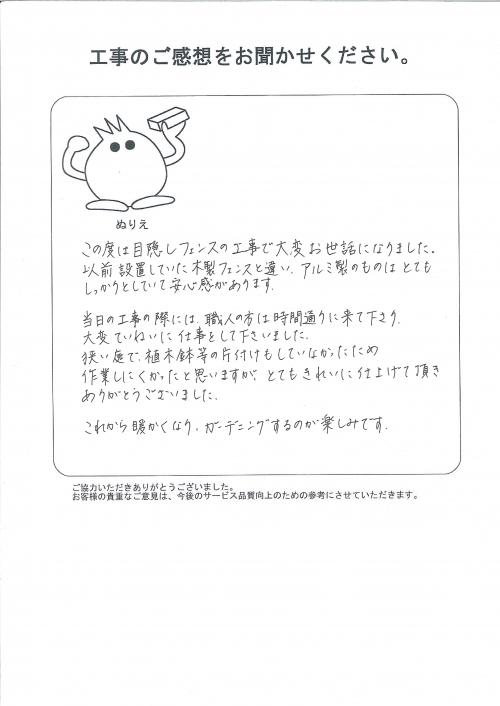 工事のご感想をお聞かせください。
ぬりえ
この度は目隠しフェンスの工事で大変お世話になりました。
以前設置していた木製フェンスと違い、アルミ製のものはとても
しっかりとしていて安心感があります。
当日の工事の際には、職人の方は時間通りに来て下さり、
大変ていねいに仕事をして下さいました。
狭い庭で、植木鉢等の片付けもしていなかったため
作業しにくかったと思いますが、とてもきれいに仕上げて頂き
ありがとうございました。
これから暖かくなり、ガーデニングするのが楽しみです。
ご協力いただきありがとうございました。
お客様の貴重なご意見は、今後のサービス品質向上のための参考にさせていただきます。